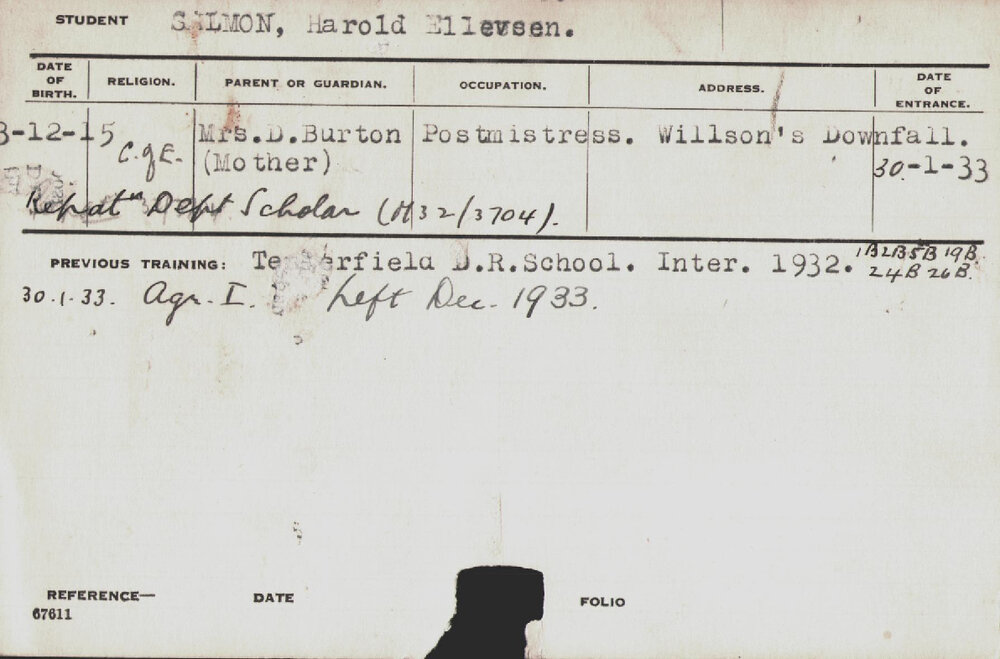 STUDENT SALMON, Harold Ellevsen.
DATE OF BIRTH. RELIGION. PARENT OR GUARDIAN. OCCUPATION. ADDRESS. DATE OF ENTRANCE.
3-12-15 C. of E. Mrs.D.Burton Postmistress. Willson's Downfall.
(Mother) 30-1-33
Repatn Dept Scholar (M32/3704).
PREVIOUS TRAINING: Tenterfield D.R.School. Inter. 1932. 1B2B5B 19B
24B 26B
30.1.33. Agr. I. Left Dec. 1933.
REFERENCE— DATE FOLIO
67611